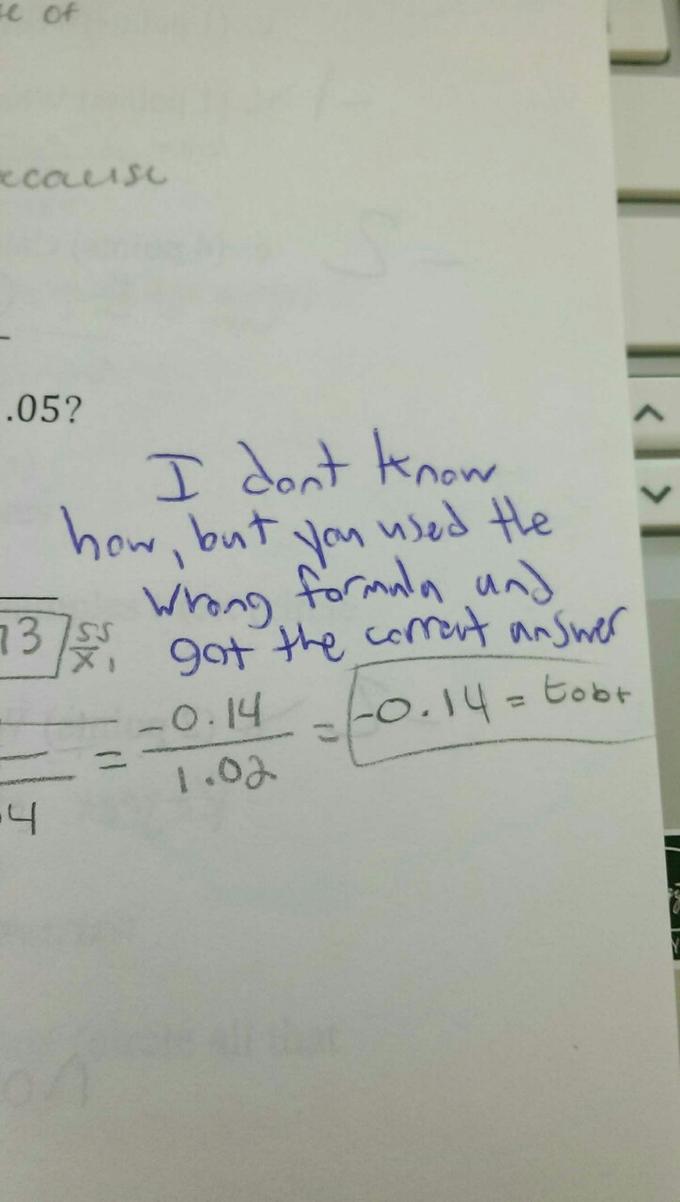 se of
because
.05?
I dont know
how, but you used the
wrong formula and
got the correct answer
73 SS
X₁
= -0.14 / 1.02 = -0.14 = tobt
04